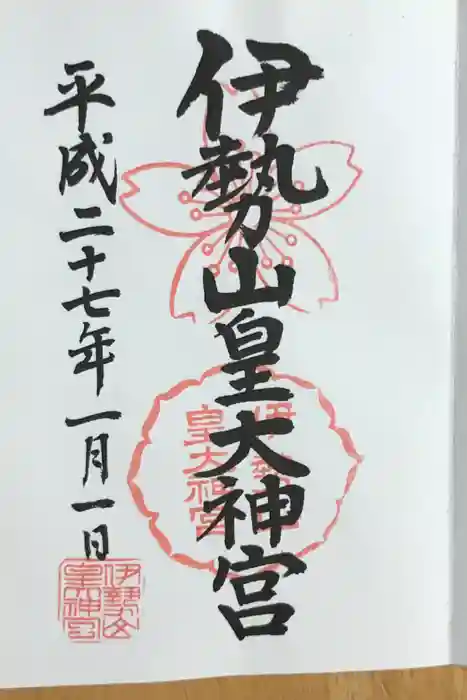 伊勢山皇大神宮
平成二十七年一月一日
伊勢山
皇大神宮
伊勢山
皇大神宮